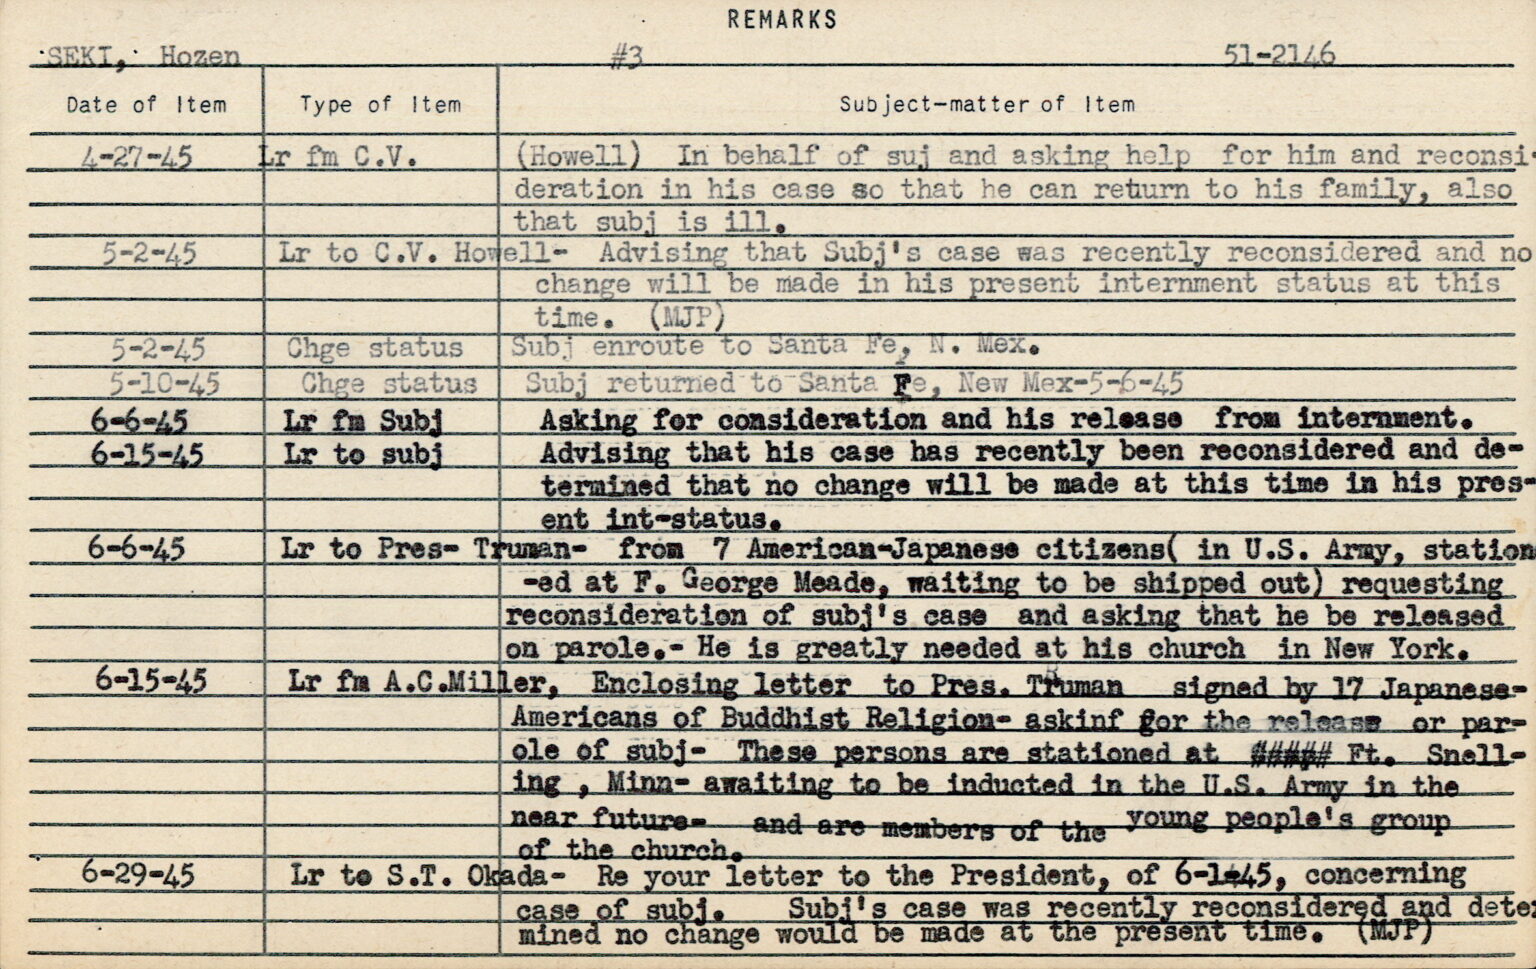 REMARKS
SEKI, Hozen #3 51-2146
Date of Item Type of Item Subject-matter of Item
4-27-45 Lr fm C.V. (Howell) In behalf of suj and asking help for him and reconsi-
deration in his case so that he can return to his family, also
that subj is ill.
5-2-45 Lr to C.V. Howell- Advising that Subj's case was recently reconsidered and no
change will be made in his present internment status at this
time. (MJP)
5-2-45 Chge status Subj enroute to Santa Fe, N. Mex.
5-10-45 Chge status Subj returned to Santa Fe, New Mex-5-6-45
6-6-45 Lr fm Subj Asking for consideration and his release from internment.
6-15-45 Lr to subj Advising that his case has recently been reconsidered and de-
termined that no change will be made at this time in his pres-
ent int-status.
6-6-45 Lr to Pres- Truman- from 7 American-Japanese citizens( in U.S. Army, station
-ed at F. George Meade, waiting to be shipped out) requesting
reconsideration of subj's case and asking that he be released
on parole.- He is greatly needed at his church in New York.
6-15-45 Lr fm A.C.Miller, Enclosing letter to Pres. Truman signed by 17 Japanese-
Americans of Buddhist Religion- askinf for the release or par-
ole of subj- These persons are stationed at ##### Ft. Snell-
ing , Minn- awaiting to be inducted in the U.S. Army in the
near future- and are members of the young people's group
of the church.
6-29-45 Lr to S.T. Okada- Re your letter to the President, of 6-1-45, concerning
case of subj. Subj's case was recently reconsidered and deter
mined no change would be made at the present time. (MJP)